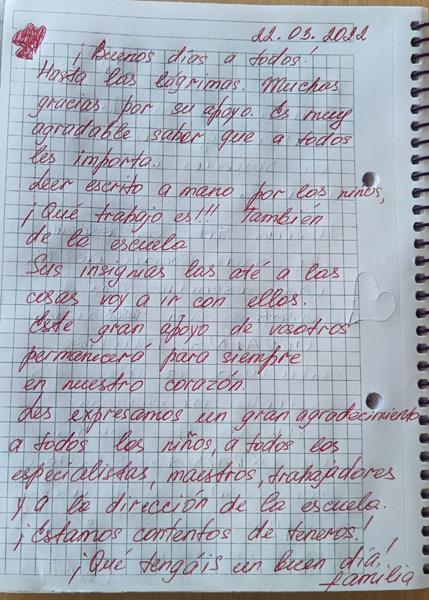 22.03.2022
¡Buenos días a todos!
Hasta las lágrimas. Muchas
gracias por su apoyo. Es muy
agradable saber que a todos
les importa.
Leer escrito a mano por los niños,
¡Qué trabajo es!!! También
de la escuela
Sus insignias las até a las
cosas voy a ir con ellos.
Este gran apoyo de vosotros
permanicerá para siempre
en nuestro corazón.
Les expresamos un gran agradecimiento
a todos los niños, a todos los
especialistas, maestros, trabajadores
y a la dirección de la escuela.
¡Estamos contentos de teneros!
¡Qué tengáis un buen día!
familia